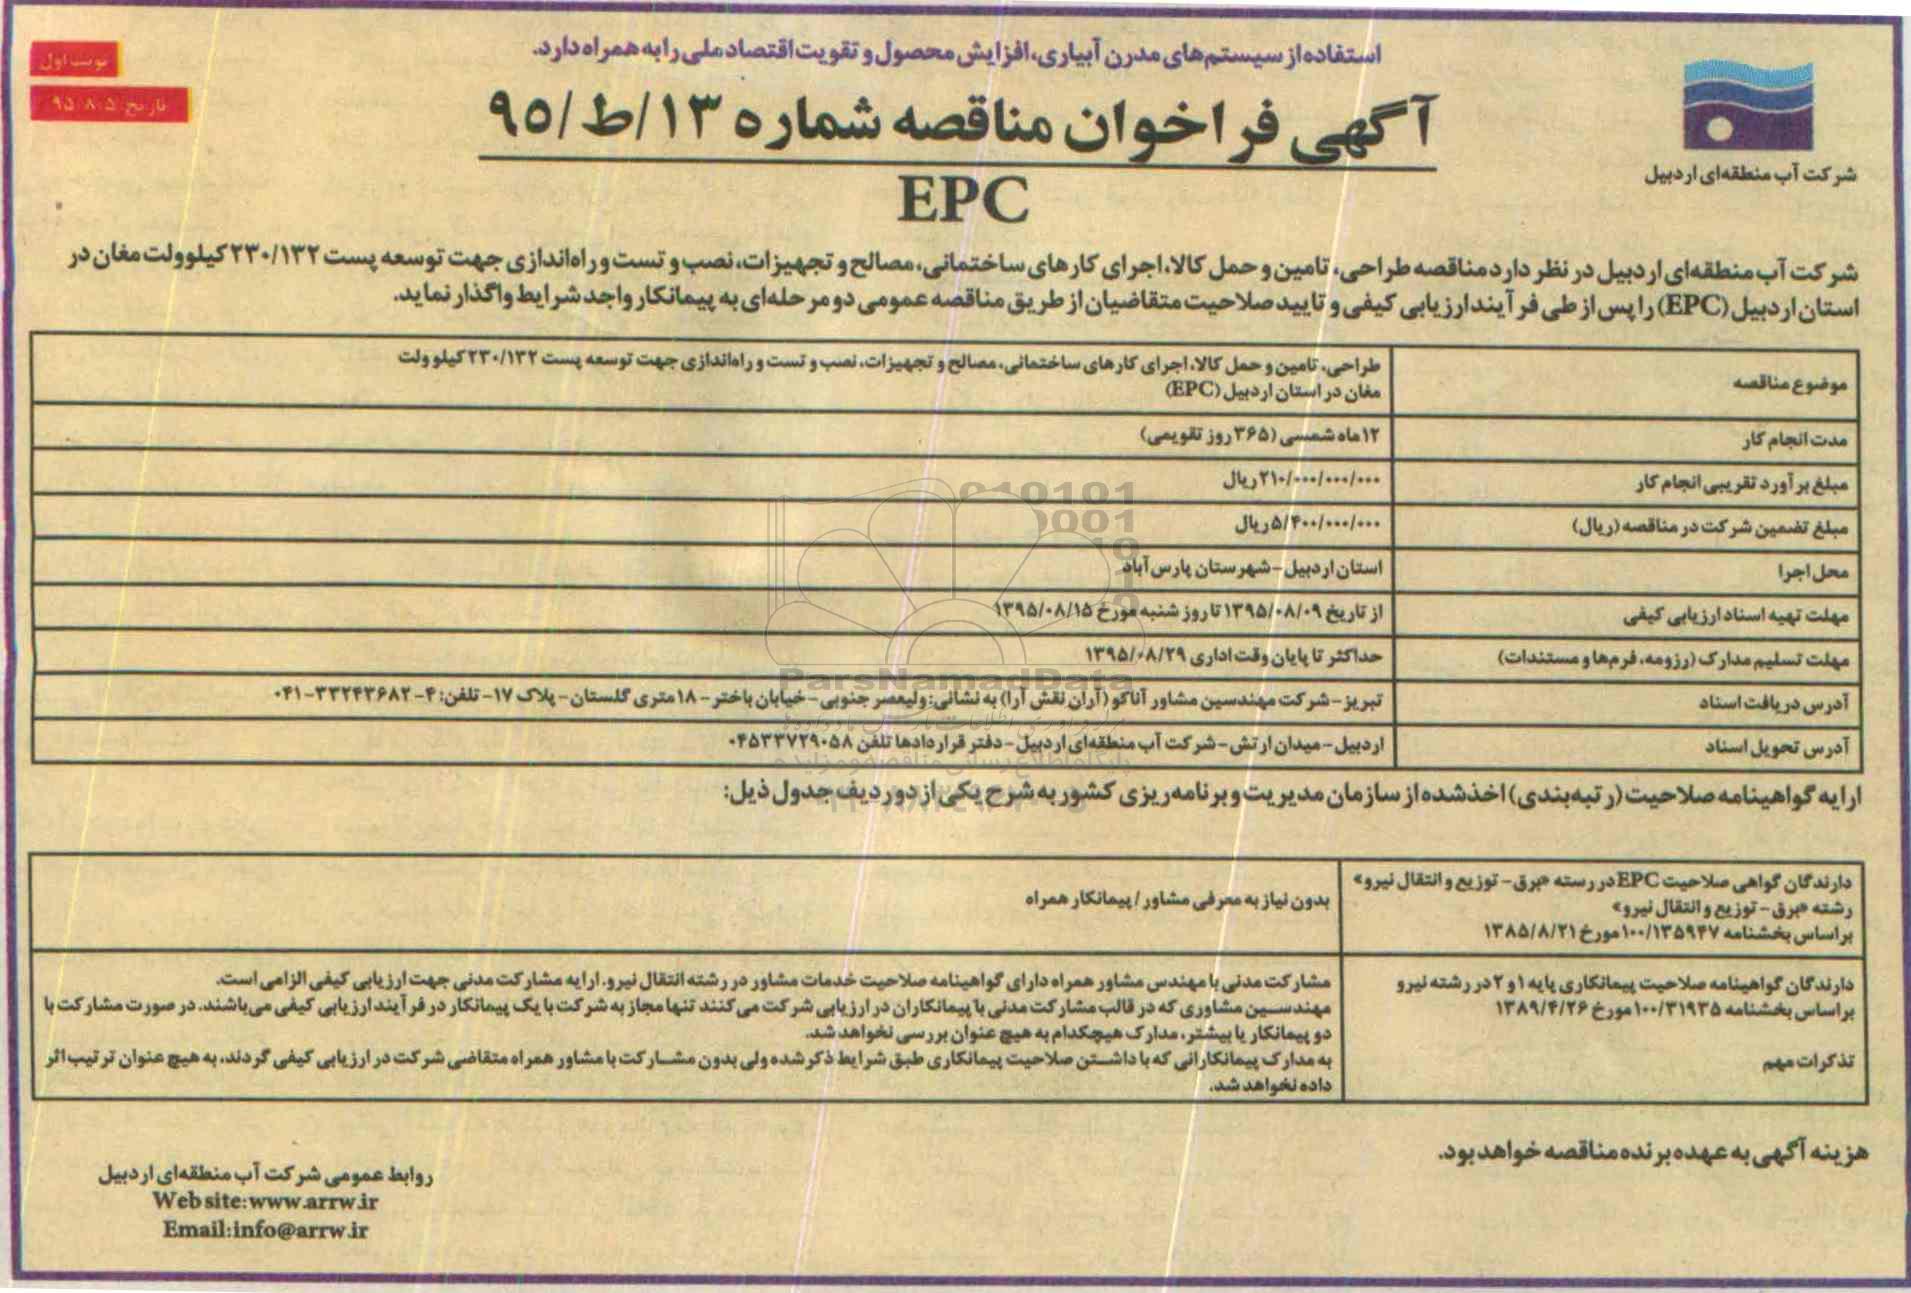 استفاده از سیستم‌های مدرن آبیاری، افزایش محصول و تقویت اقتصاد ملی را به همراه دارد.
نوبت اول
تاریخ ۹۵/۸/۵
آگهی فراخوان مناقصه شماره ۱۳/ط/۹۵
EPC
شرکت آب منطقه‌ای اردبیل
شرکت آب منطقه‌ای اردبیل در نظر دارد مناقصه طراحی، تامین و حمل کالا، اجرای کارهای ساختمانی، مصالح و تجهیزات، نصب و تست و راه‌اندازی جهت توسعه پست ۲۳۰/۱۳۲ کیلوولت مغان در
استان اردبیل (EPC) را پس از طی فرآیند ارزیابی کیفی و تایید صلاحیت متقاضیان از طریق مناقصه عمومی دو مرحله‌ای به پیمانکار واجد شرایط واگذار نماید.
موضوع مناقصه
طراحی، تامین و حمل کالا، اجرای کارهای ساختمانی، مصالح و تجهیزات، نصب و تست و راه‌اندازی جهت توسعه پست ۲۳۰/۱۳۲ کیلو ولت
مغان در استان اردبیل (EPC)
مدت انجام کار
۱۲ ماه شمسی (۳۶۵ روز تقویمی)
مبلغ برآورد تقریبی انجام کار
۲۱۰/۰۰۰/۰۰۰/۰۰۰ ریال
مبلغ تضمین شرکت در مناقصه (ریال)
۵/۴۰۰/۰۰۰/۰۰۰ ریال
محل اجرا
استان اردبیل - شهرستان پارس آباد
مهلت تهیه اسناد ارزیابی کیفی
از تاریخ ۱۳۹۵/۰۸/۰۹ تا روز شنبه مورخ ۱۳۹۵/۰۸/۱۵
مهلت تسلیم مدارک (رزومه، فرم‌ها و مستندات)
حداکثر تا پایان وقت اداری ۱۳۹۵/۰۸/۲۹
آدرس دریافت اسناد
تبریز - شرکت مهندسین مشاور آناکو (آران نقش آرا) به نشانی: ولیعصر جنوبی - خیابان باختر - ۱۸ متری گلستان - پلاک ۱۷ - تلفن: ۴-۳۳۲۴۳۶۸۲-۰۴۱
آدرس تحویل اسناد
اردبیل - میدان ارتش - شرکت آب منطقه‌ای اردبیل - دفتر قراردادها تلفن ۰۴۵۳۳۷۲۹۰۵۸
ارایه گواهینامه صلاحیت (رتبه‌بندی) اخذ شده از سازمان مدیریت و برنامه‌ریزی کشور به شرح یکی از دو ردیف جدول ذیل:
دارندگان گواهی صلاحیت EPC در رسته «برق - توزیع و انتقال نیرو»
رشته «برق - توزیع و انتقال نیرو»
براساس بخشنامه ۱۰۰/۱۳۵۹۴۷ مورخ ۱۳۸۵/۸/۲۱
بدون نیاز به معرفی مشاور / پیمانکار همراه
دارندگان گواهینامه صلاحیت پیمانکاری پایه ۱ و ۲ در رشته نیرو
براساس بخشنامه ۱۰۰/۳۱۹۳۵ مورخ ۱۳۸۹/۴/۲۶
تذکرات مهم
مشارکت مدنی با مهندس مشاور همراه دارای گواهینامه صلاحیت خدمات مشاور در رشته انتقال نیرو. ارایه مشارکت مدنی جهت ارزیابی کیفی الزامی است.
مهندسین مشاوری که در قالب مشارکت مدنی با پیمانکاران در ارزیابی شرکت می‌کنند تنها مجاز به شرکت با یک پیمانکار در فرآیند ارزیابی کیفی می‌باشند. در صورت مشارکت با
دو پیمانکار یا بیشتر، مدارک هیچکدام به هیچ عنوان بررسی نخواهد شد.
به مدارک پیمانکارانی که با داشتن صلاحیت پیمانکاری طبق شرایط ذکر شده ولی بدون مشارکت با مشاور همراه متقاضی شرکت در ارزیابی کیفی گردند، به هیچ عنوان ترتیب اثر
داده نخواهد شد.
هزینه آگهی به عهده برنده مناقصه خواهد بود.
روابط عمومی شرکت آب منطقه‌ای اردبیل
Web site:www.arrw.ir
Email:info@arrw.ir
ParsNamadData
پایگاه اطلاع رسانی مناقصه و مزایده